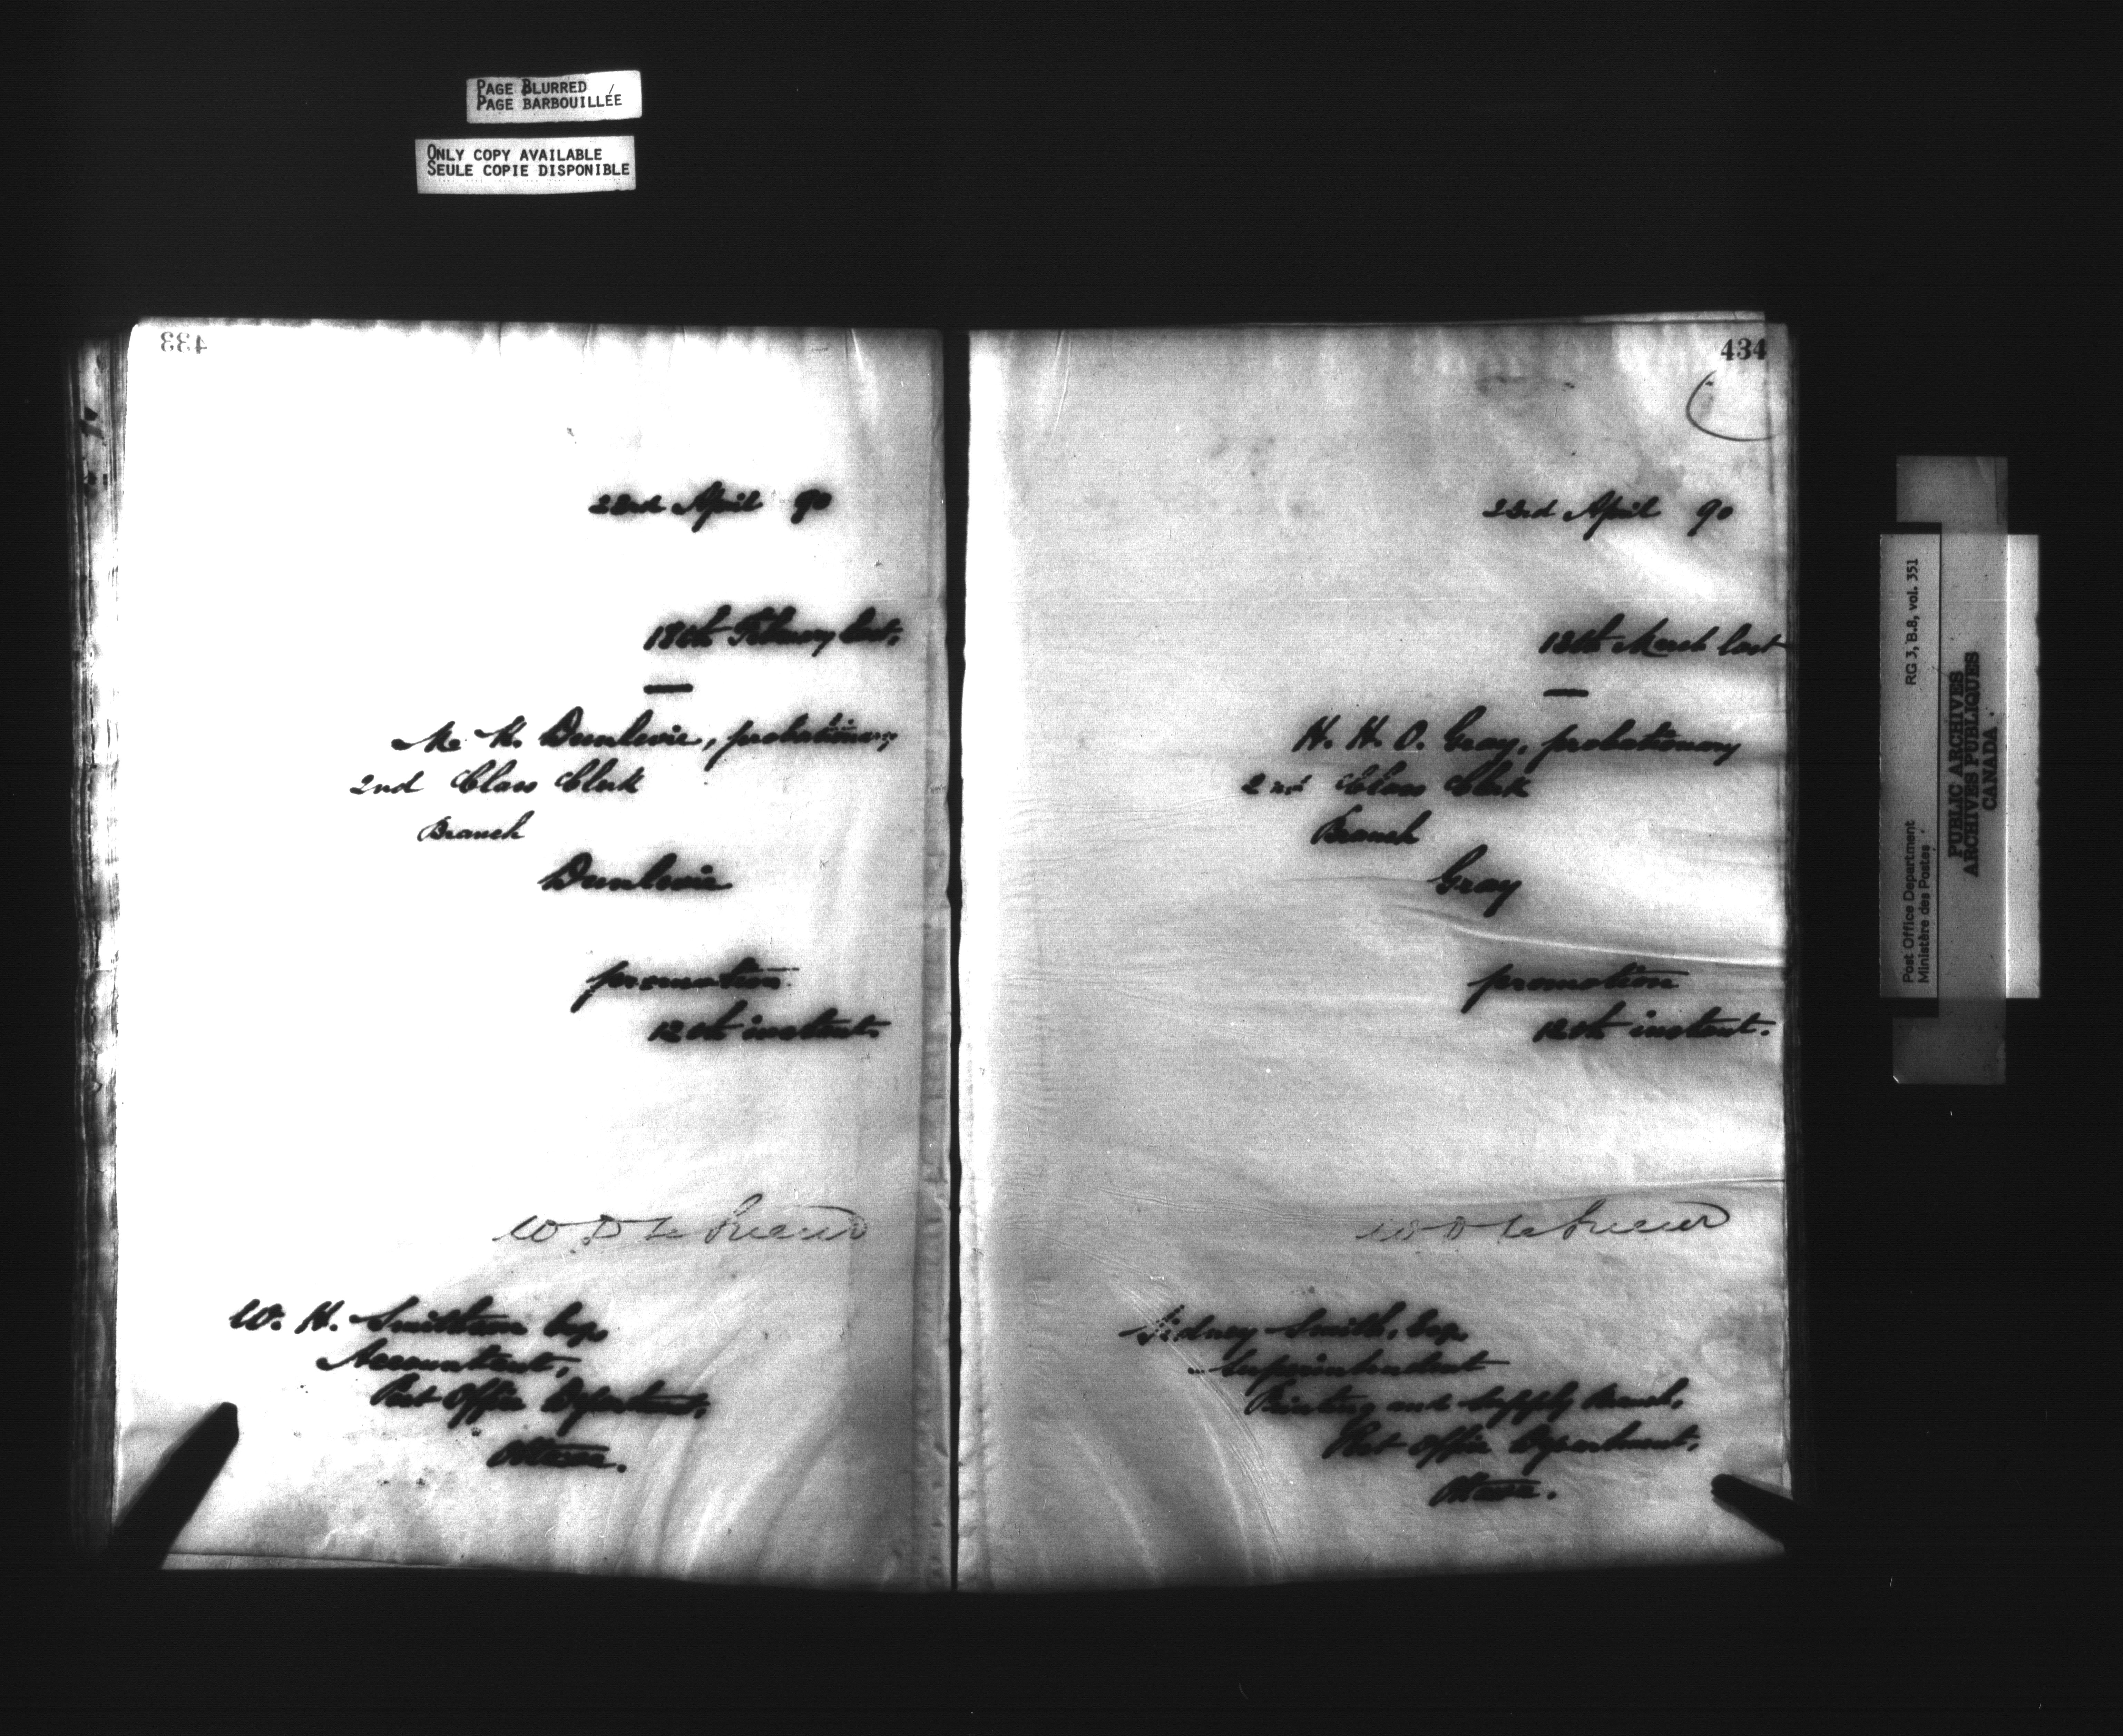 PAGE BLURRED
PAGE BARBOUILLÉE
ONLY COPY AVAILABLE
SEULE COPIE DISPONIBLE
433
22nd April 90
18th February last,
—
M. K. Dunlevie, probationary
2nd Class Clerk
Branch
Dunlevie
promotion
12th instant.
W D Le Sueur
W. H. Smithson Esq,
Accountant,
Post Office Department,
Ottawa.
434
22nd April 90
18th March last
—
H. H. O. Gray, probationary
2nd Class Clerk
Branch
Gray
promotion
12th instant.
W D Le Sueur
Sidney Smith, Esq,
Superintendent
Printing and Supply Branch,
Post Office Department,
Ottawa.
Post Office Department RG 3, B.8, vol. 351
Ministère des Postes
PUBLIC ARCHIVES
ARCHIVES PUBLIQUES
CANADA